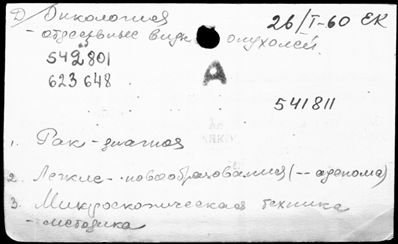 Д Онкология 26/I-60 ЕК
- отдельные виды опухолей.
542801
623648
А
541811
1. Рак - диагноз
2. Легкие - новообразования (-- аденома)
3. Микроскопическая техника
- методика